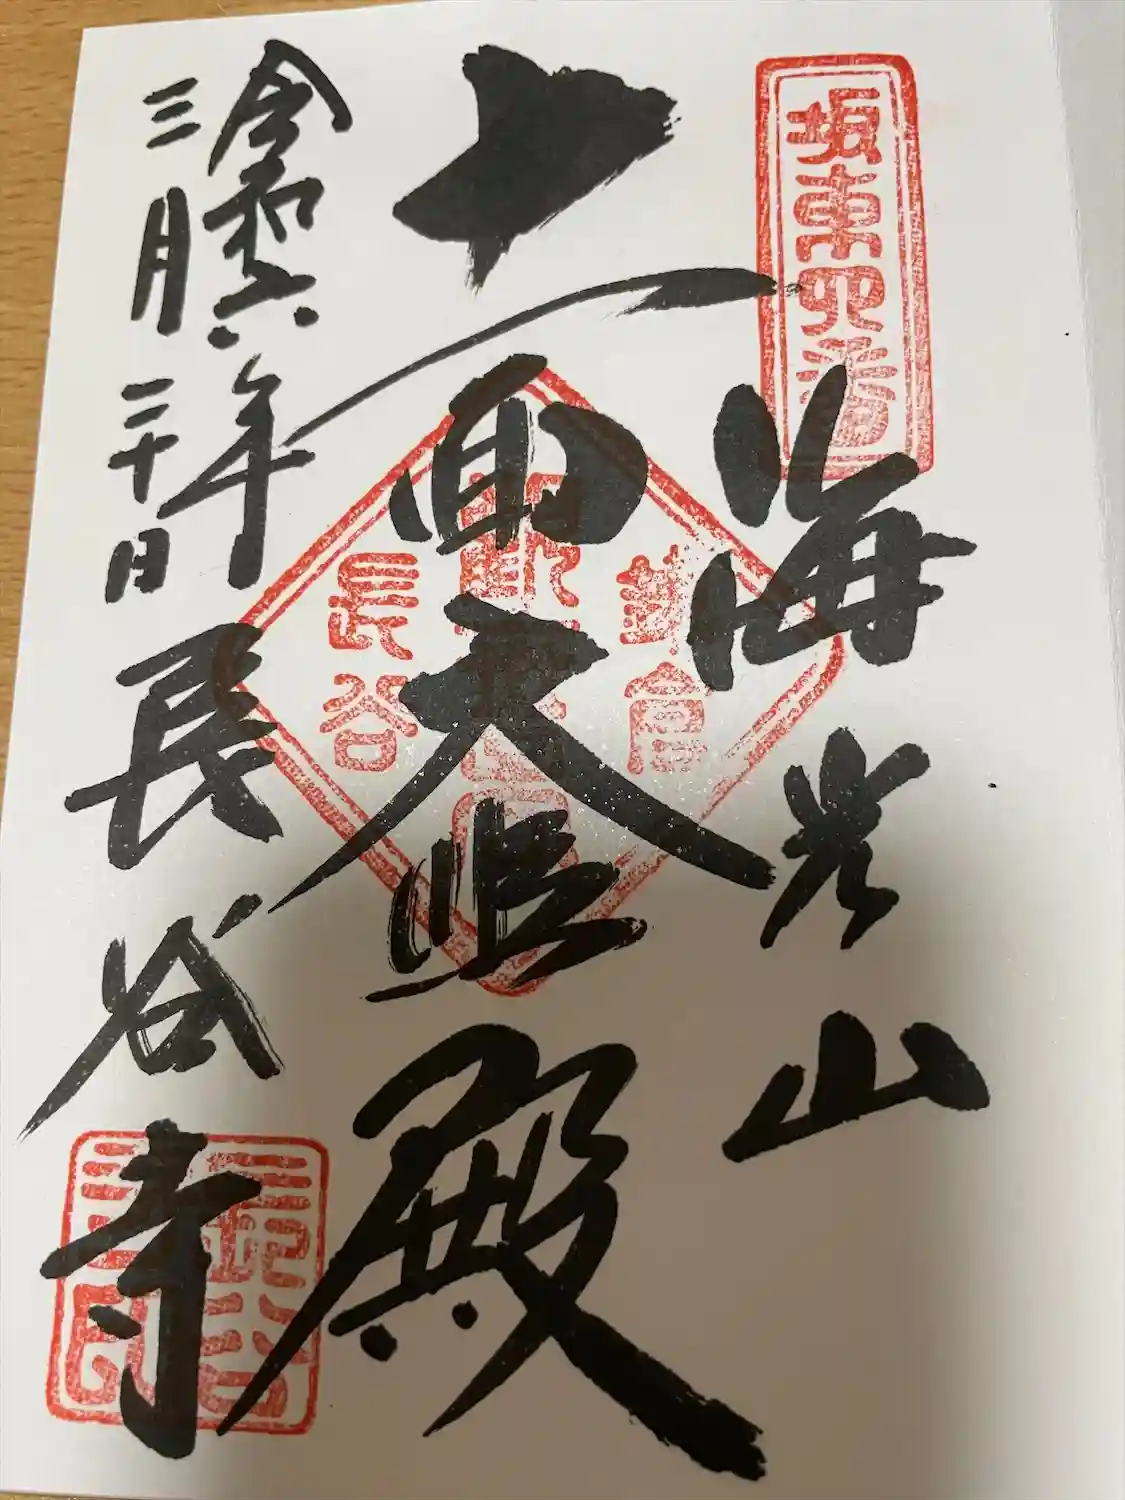 坂東四番
海光山
十一面大悲殿
鎌倉
長谷
令和六年
三月二十日
長谷寺